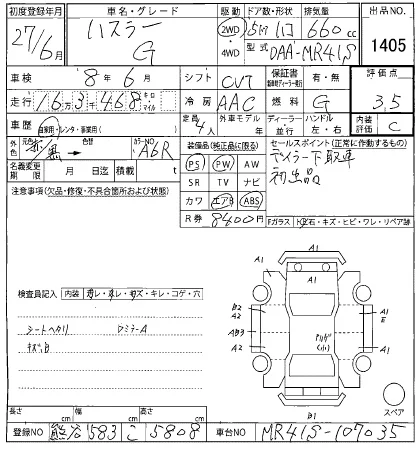 初度登録年月 車名・グレード 駆動 ドア数・形状 排気量 出品NO.
27/6月 ハスラー G 2WD 4WD 5D 660cc 1405
型式 DAA-MR41S
車検 8年6月 シフト CVT 保証書 有・無 評価点 3.5
走行 16万3千468 キロ マイル 冷房 AAC 燃料 G
車歴 自家用・レンタ・事業用( ) 定員 4人 外車モデル 年 ディーラー 並行 ハンドル 左・右 内装評価 C
外色 元色 色替 カラーNO. A6R
名義変更期限 月 日 迄 積載 t
装備品(純正品に限る)
PS PW AW
SR TV ナビ
カワ エアB ABS
R券 8400円
セールスポイント(正常に作動するもの)
ディーラー下取車
初出品
注意事項(欠品・修復・不具合箇所および状態)
Fガラス トビ石・キズ・ヒビ・ワレ・リペア跡
検査員記入 内装 ヨゴレ・スレ・キズ・キレ・コゲ・穴
シートヘタリ
A1 A1 A1
B2 A2 AB3 A2
A1 E
A1 A1
B1
スペア
長さ cm 幅 cm 高さ cm
登録NO 熊谷 583 こ 5808 車台NO MR41S-107035